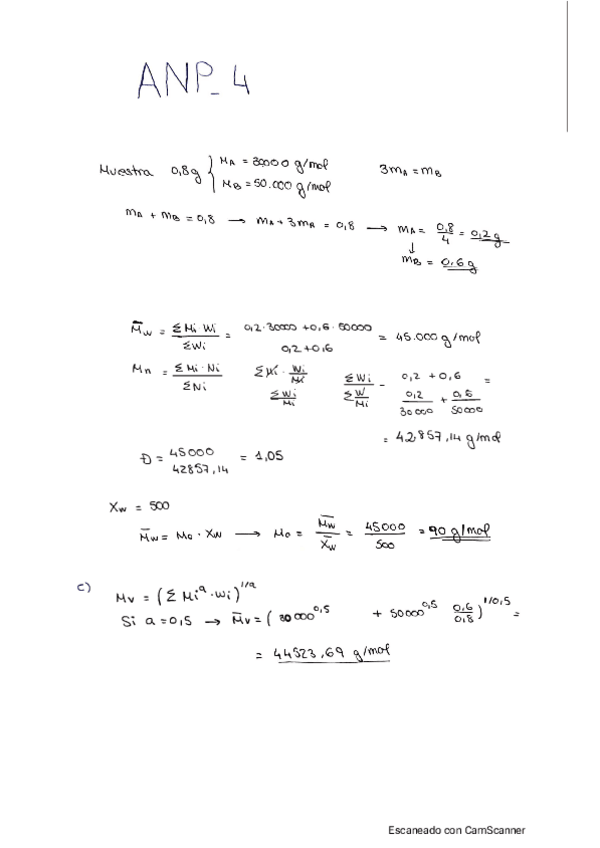 ANP_4
Muestra 0,8g { MA = 30000 g/mol 3mA = mB
MB = 50.000 g/mol
mA + mB = 0,8 → mA + 3mA = 0,8 → mA = 0,8/4 = 0,2 g
↓
mB = 0,6 g
M̄w = ΣMi·Wi/ΣWi = 0,2·30000 + 0,6·50000/0,2 + 0,6 = 45.000 g/mol
Mn = ΣMi·Ni/ΣNi ΣMi·Wi/Mi / ΣWi/Mi ΣWi/ΣW/Mi - 0,2 + 0,6 / 0,2/30000 + 0,6/50000 =
= 42.857,14 g/mol
Đ = 45000/42857,14 = 1,05
Xw = 500
M̄w = Mo · Xw → Mo = M̄w/X̄w = 45000/500 = 90 g/mol
c) Mv = (ΣMi^a · Wi)^1/a
Si a = 0,5 → M̄v = (30000^0,5 + 50000^0,5 0,6/0,8)^1/0,5 =
= 44523,69 g/mol
Escaneado con CamScanner